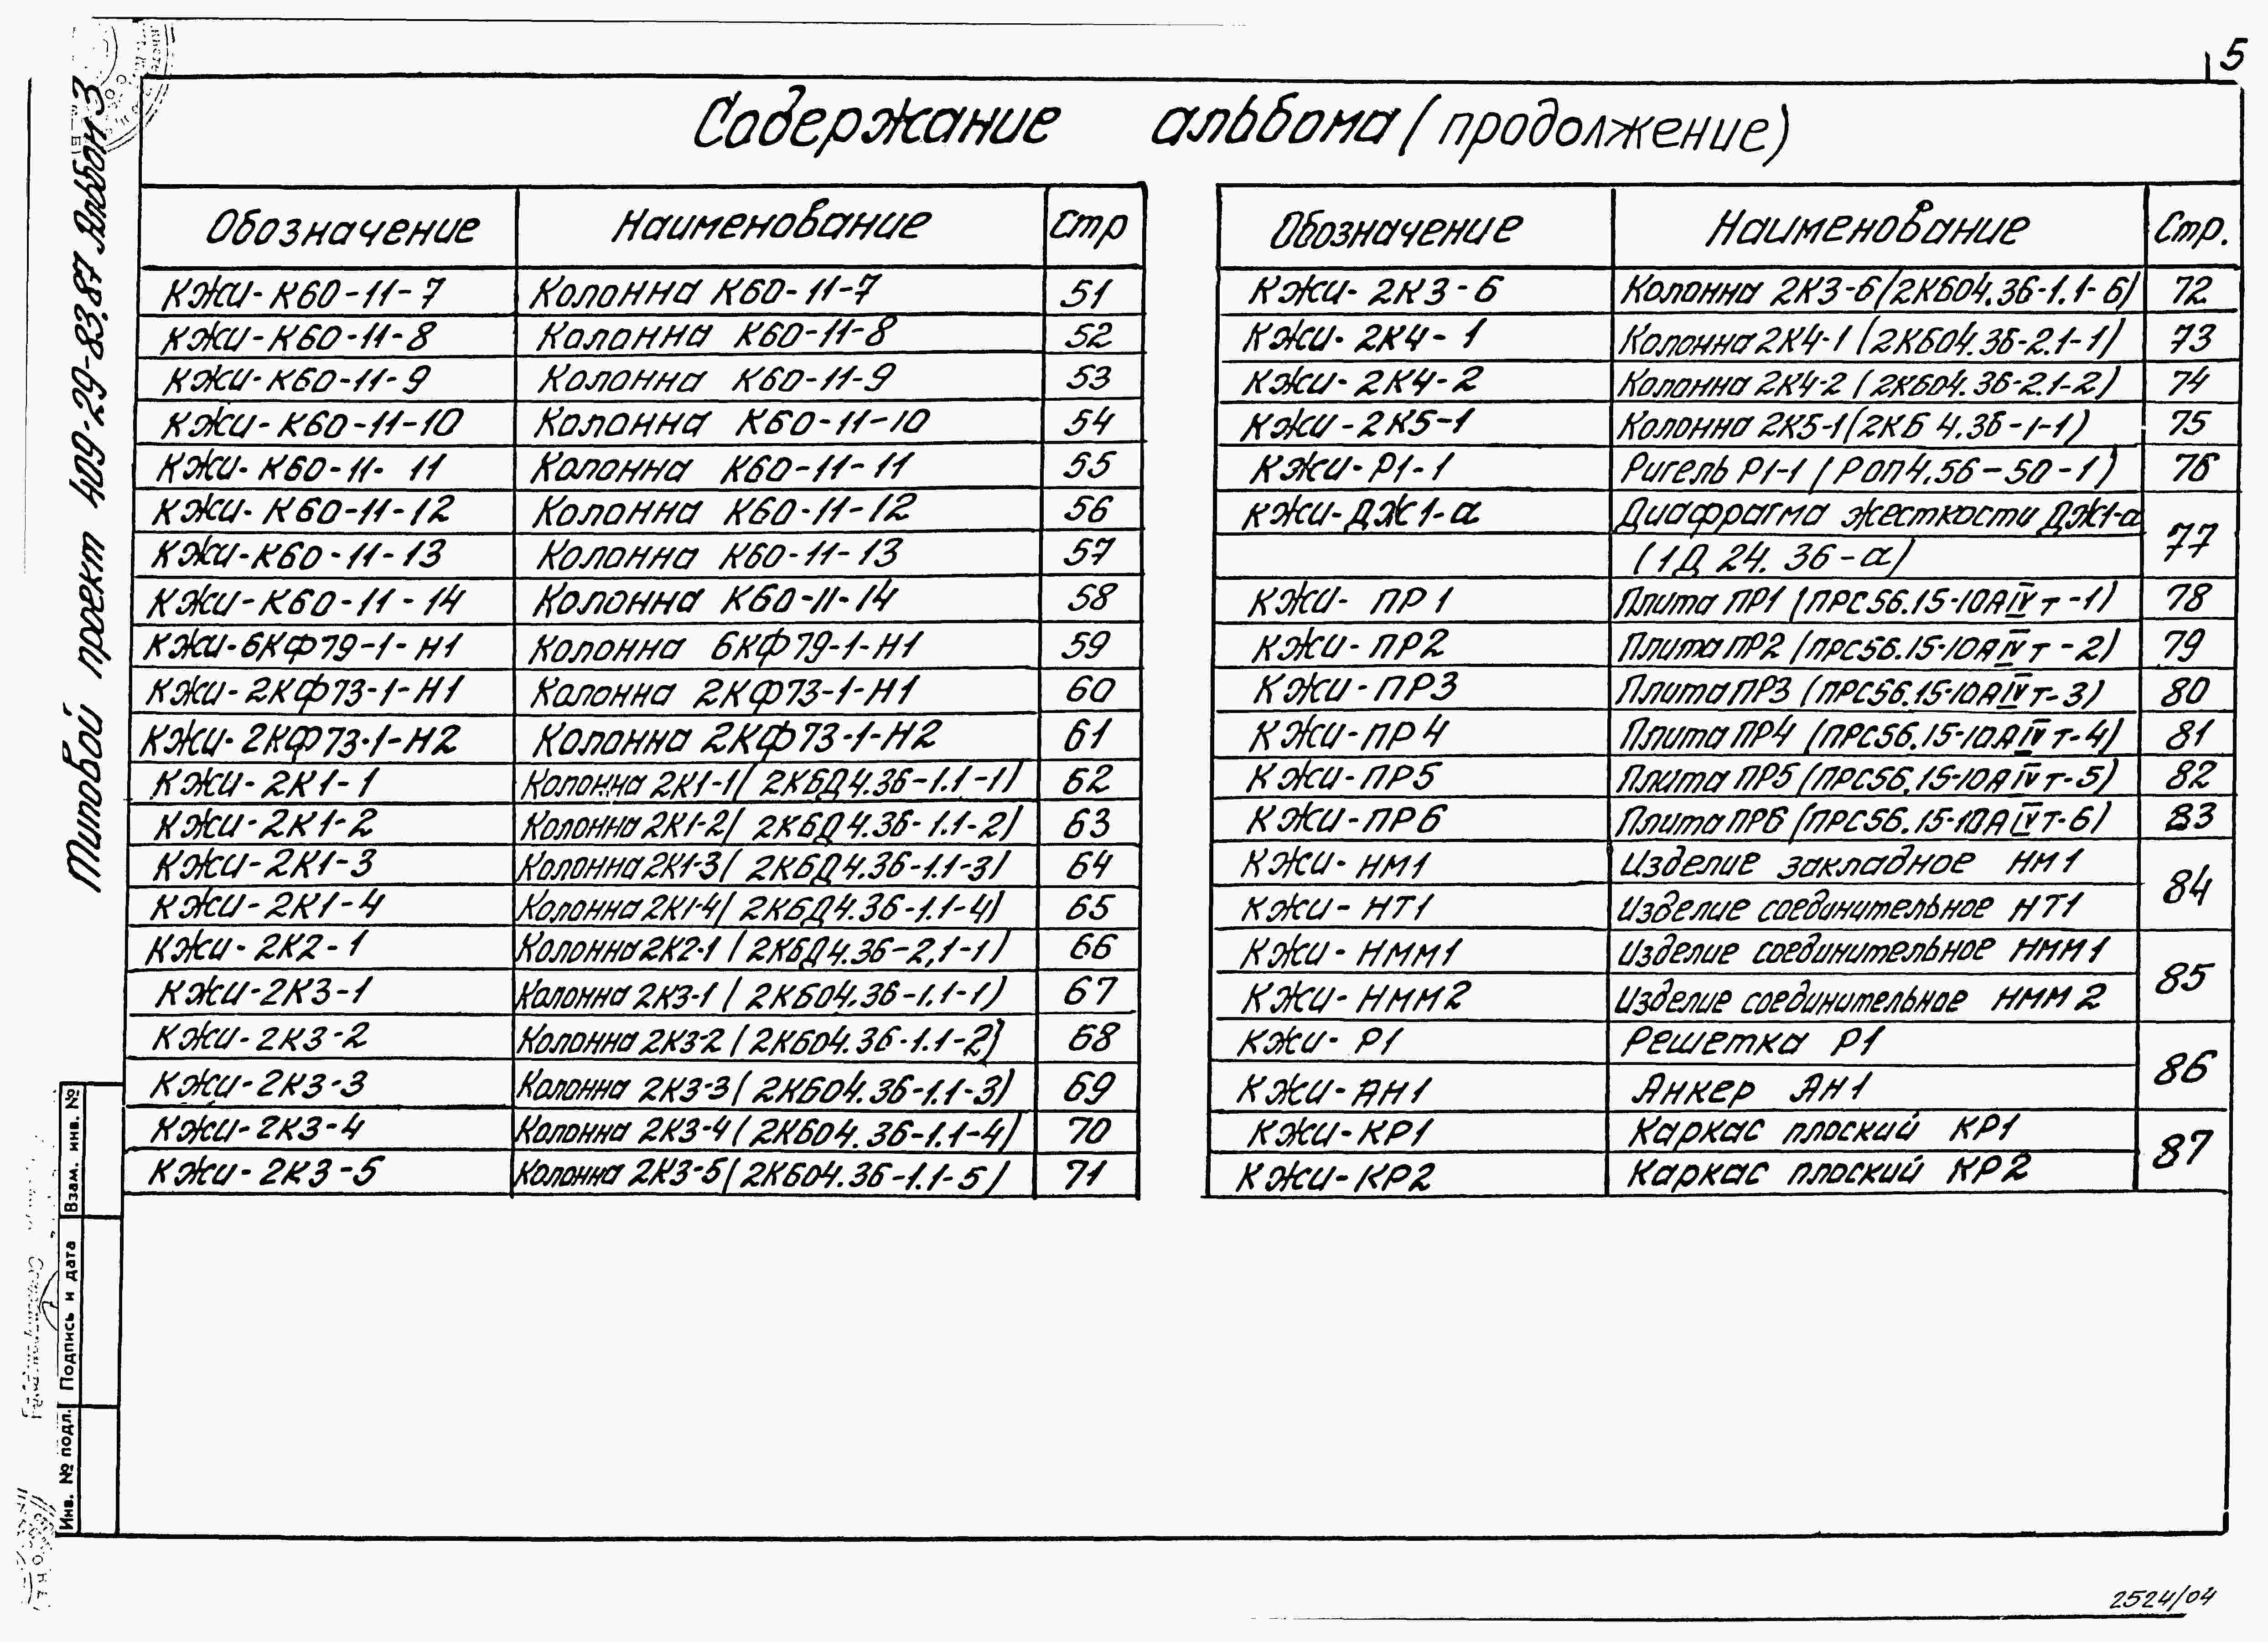 5
Содержание альбома (продолжение)
Типовой проект 409-29-83.87 Альбом 3
Обозначение Наименование Стр
КЖИ-К60-11-7 Колонна К60-11-7 51
КЖИ-К60-11-8 Колонна К60-11-8 52
КЖИ-К60-11-9 Колонна К60-11-9 53
КЖИ-К60-11-10 Колонна К60-11-10 54
КЖИ-К60-11-11 Колонна К60-11-11 55
КЖИ-К60-11-12 Колонна К60-11-12 56
КЖИ-К60-11-13 Колонна К60-11-13 57
КЖИ-К60-11-14 Колонна К60-11-14 58
КЖИ-6КФ79-1-Н1 Колонна 6КФ79-1-Н1 59
КЖИ-2КФ73-1-Н1 Колонна 2КФ73-1-Н1 60
КЖИ-2КФ73-1-Н2 Колонна 2КФ73-1-Н2 61
КЖИ-2К1-1 Колонна 2К1-1 (2КБД4.36-1.1-1) 62
КЖИ-2К1-2 Колонна 2К1-2 (2КБД4.36-1.1-2) 63
КЖИ-2К1-3 Колонна 2К1-3 (2КБД4.36-1.1-3) 64
КЖИ-2К1-4 Колонна 2К1-4 (2КБД4.36-1.1-4) 65
КЖИ-2К2-1 Колонна 2К2-1 (2КБД4.36-2,1-1) 66
КЖИ-2К3-1 Колонна 2К3-1 (2КБ04.36-1.1-1) 67
КЖИ-2К3-2 Колонна 2К3-2 (2КБ04.36-1.1-2) 68
КЖИ-2К3-3 Колонна 2К3-3 (2КБ04.36-1.1-3) 69
КЖИ-2К3-4 Колонна 2К3-4 (2КБ04.36-1.1-4) 70
КЖИ-2К3-5 Колонна 2К3-5 (2КБ04.36-1.1-5) 71
Обозначение Наименование Стр.
КЖИ-2К3-6 Колонна 2К3-6 (2КБ04.36-1.1-6) 72
КЖИ-2К4-1 Колонна 2К4-1 (2КБ04.36-2.1-1) 73
КЖИ-2К4-2 Колонна 2К4-2 (2КБ04.36-2.1-2) 74
КЖИ-2К5-1 Колонна 2К5-1 (2КБ 4.36-1-1) 75
КЖИ-Р1-1 Ригель Р1-1 (РОП4.56-50-1) 76
КЖИ-ДЖ1-а Диафрагма жесткости ДЖ1-а 77
(1Д 24.36-а)
КЖИ-ПР1 Плита ПР1 (ПРС56.15-10АIVт-1) 78
КЖИ-ПР2 Плита ПР2 (ПРС56.15-10АIVт-2) 79
КЖИ-ПР3 Плита ПР3 (ПРС56.15-10АIVт-3) 80
КЖИ-ПР4 Плита ПР4 (ПРС56.15-10АIVт-4) 81
КЖИ-ПР5 Плита ПР5 (ПРС56.15-10АIVт-5) 82
КЖИ-ПР6 Плита ПР6 (ПРС56.15-10АIVт-6) 83
КЖИ-НМ1 Изделие закладное НМ1 84
КЖИ-НТ1 Изделие соединительное НТ1
КЖИ-НММ1 Изделие соединительное НММ1 85
КЖИ-НММ2 Изделие соединительное НММ2
КЖИ-Р1 Решетка Р1 86
КЖИ-АН1 Анкер АН1
КЖИ-КР1 Каркас плоский КР1 87
КЖИ-КР2 Каркас плоский КР2
Взам. инв. №
Подпись и дата
Инв. № подл.
2524/04